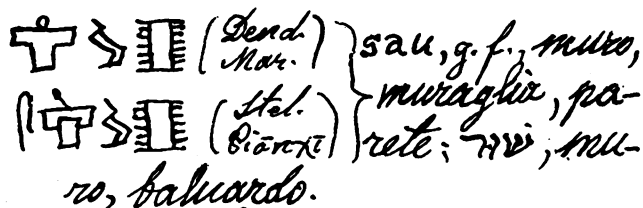 (Dend.
Mar.)
(Stel.
Piānχi)
sau, g. f., muro,
muraglia, pa-
rete; שׁוּר, mu-
ro, baluardo.